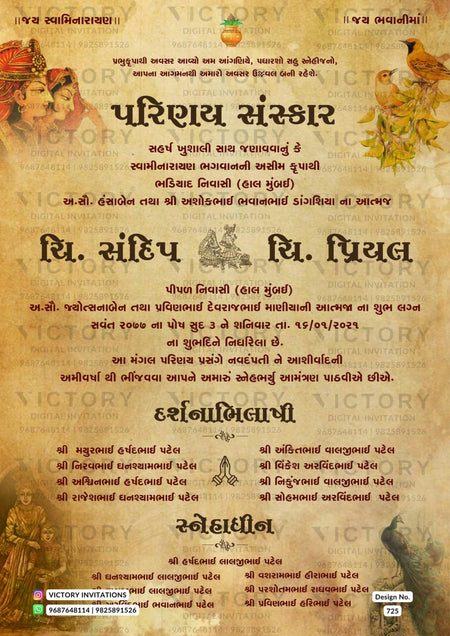 ॥જય સ્વામિનારાયણ॥
॥જય ભવાનીમાં॥
પ્રભુકૃપાથી અવસર આવ્યો અમ આંગણિયે, પધારશો સહુ સ્નેહીજનો,
આપના આગમનથી અમારો અવસર ઉજ્વલ બની રહેશે.
પરિણય સંસ્કાર
સહર્ષ ખુશાલી સાથ જણાવવાનું કે
સ્વામીનારાયણ ભગવાનની અસીમ કૃપાથી
ભડિયાદ નિવાસી (હાલ મુંબઈ)
અ.સૌ. હંસાબેન તથા શ્રી અશોકભાઈ ભવાનભાઈ ડાંગશિયા ના આત્મજ
ચિ. સંદિપ
ચિ. પ્રિયલ
પીપળ નિવાસી (હાલ મુંબઈ)
અ.સૌ. જ્યોત્સનાબેન તથા પ્રવિણભાઈ દેવરાજભાઈ માણીયાની આત્મજા ના શુભ લગ્ન
સવંત ૨૦૭૭ ના પોષ સુદ ૩ ને શનિવાર તા. ૧૬/૦૧/૨૦૨૧
ના શુભદિને નિર્ધારેલા છે.
આ મંગલ પરિણય પ્રસંગે નવદંપતી ને આશીર્વાદની
અમીવર્ષા થી ભીંજવવા આપને અમારું સ્નેહભર્યું આમંત્રણ પાઠવીએ છીએ.
દર્શનાભિલાષી
શ્રી મયુરભાઈ હર્ષદભાઈ પટેલ
શ્રી અંકિતભાઈ વાલજીભાઈ પટેલ
શ્રી નિરવભાઈ ઘનશ્યામભાઈ પટેલ
શ્રી વિંકેશ અરવિંદભાઈ પટેલ
શ્રી અશ્વિનભાઈ હર્ષદભાઈ પટેલ
શ્રી નિકુંજભાઈ વાલજીભાઈ પટેલ
શ્રી રાજેશભાઈ ઘનશ્યામભાઈ પટેલ
શ્રી સોહમભાઈ અરવિંદભાઈ પટેલ
સ્નેહાધીન
શ્રી હર્ષદભાઈ લાલજીભાઈ પટેલ
શ્રી ઘનશ્યામભાઈ લાલજીભાઈ પટેલ
શ્રી વશરામભાઈ હીરાભાઈ પટેલ
લાલજીભાઈ પટેલ
શ્રી પરશોતમભાઈ રાઘવભાઈ પટેલ
ભવાનભાઈ પટેલ
શ્રી પ્રવિણભાઈ હરિભાઈ પટેલ
VICTORY INVITATIONS
9687648114 | 9825891526
Design No.
725